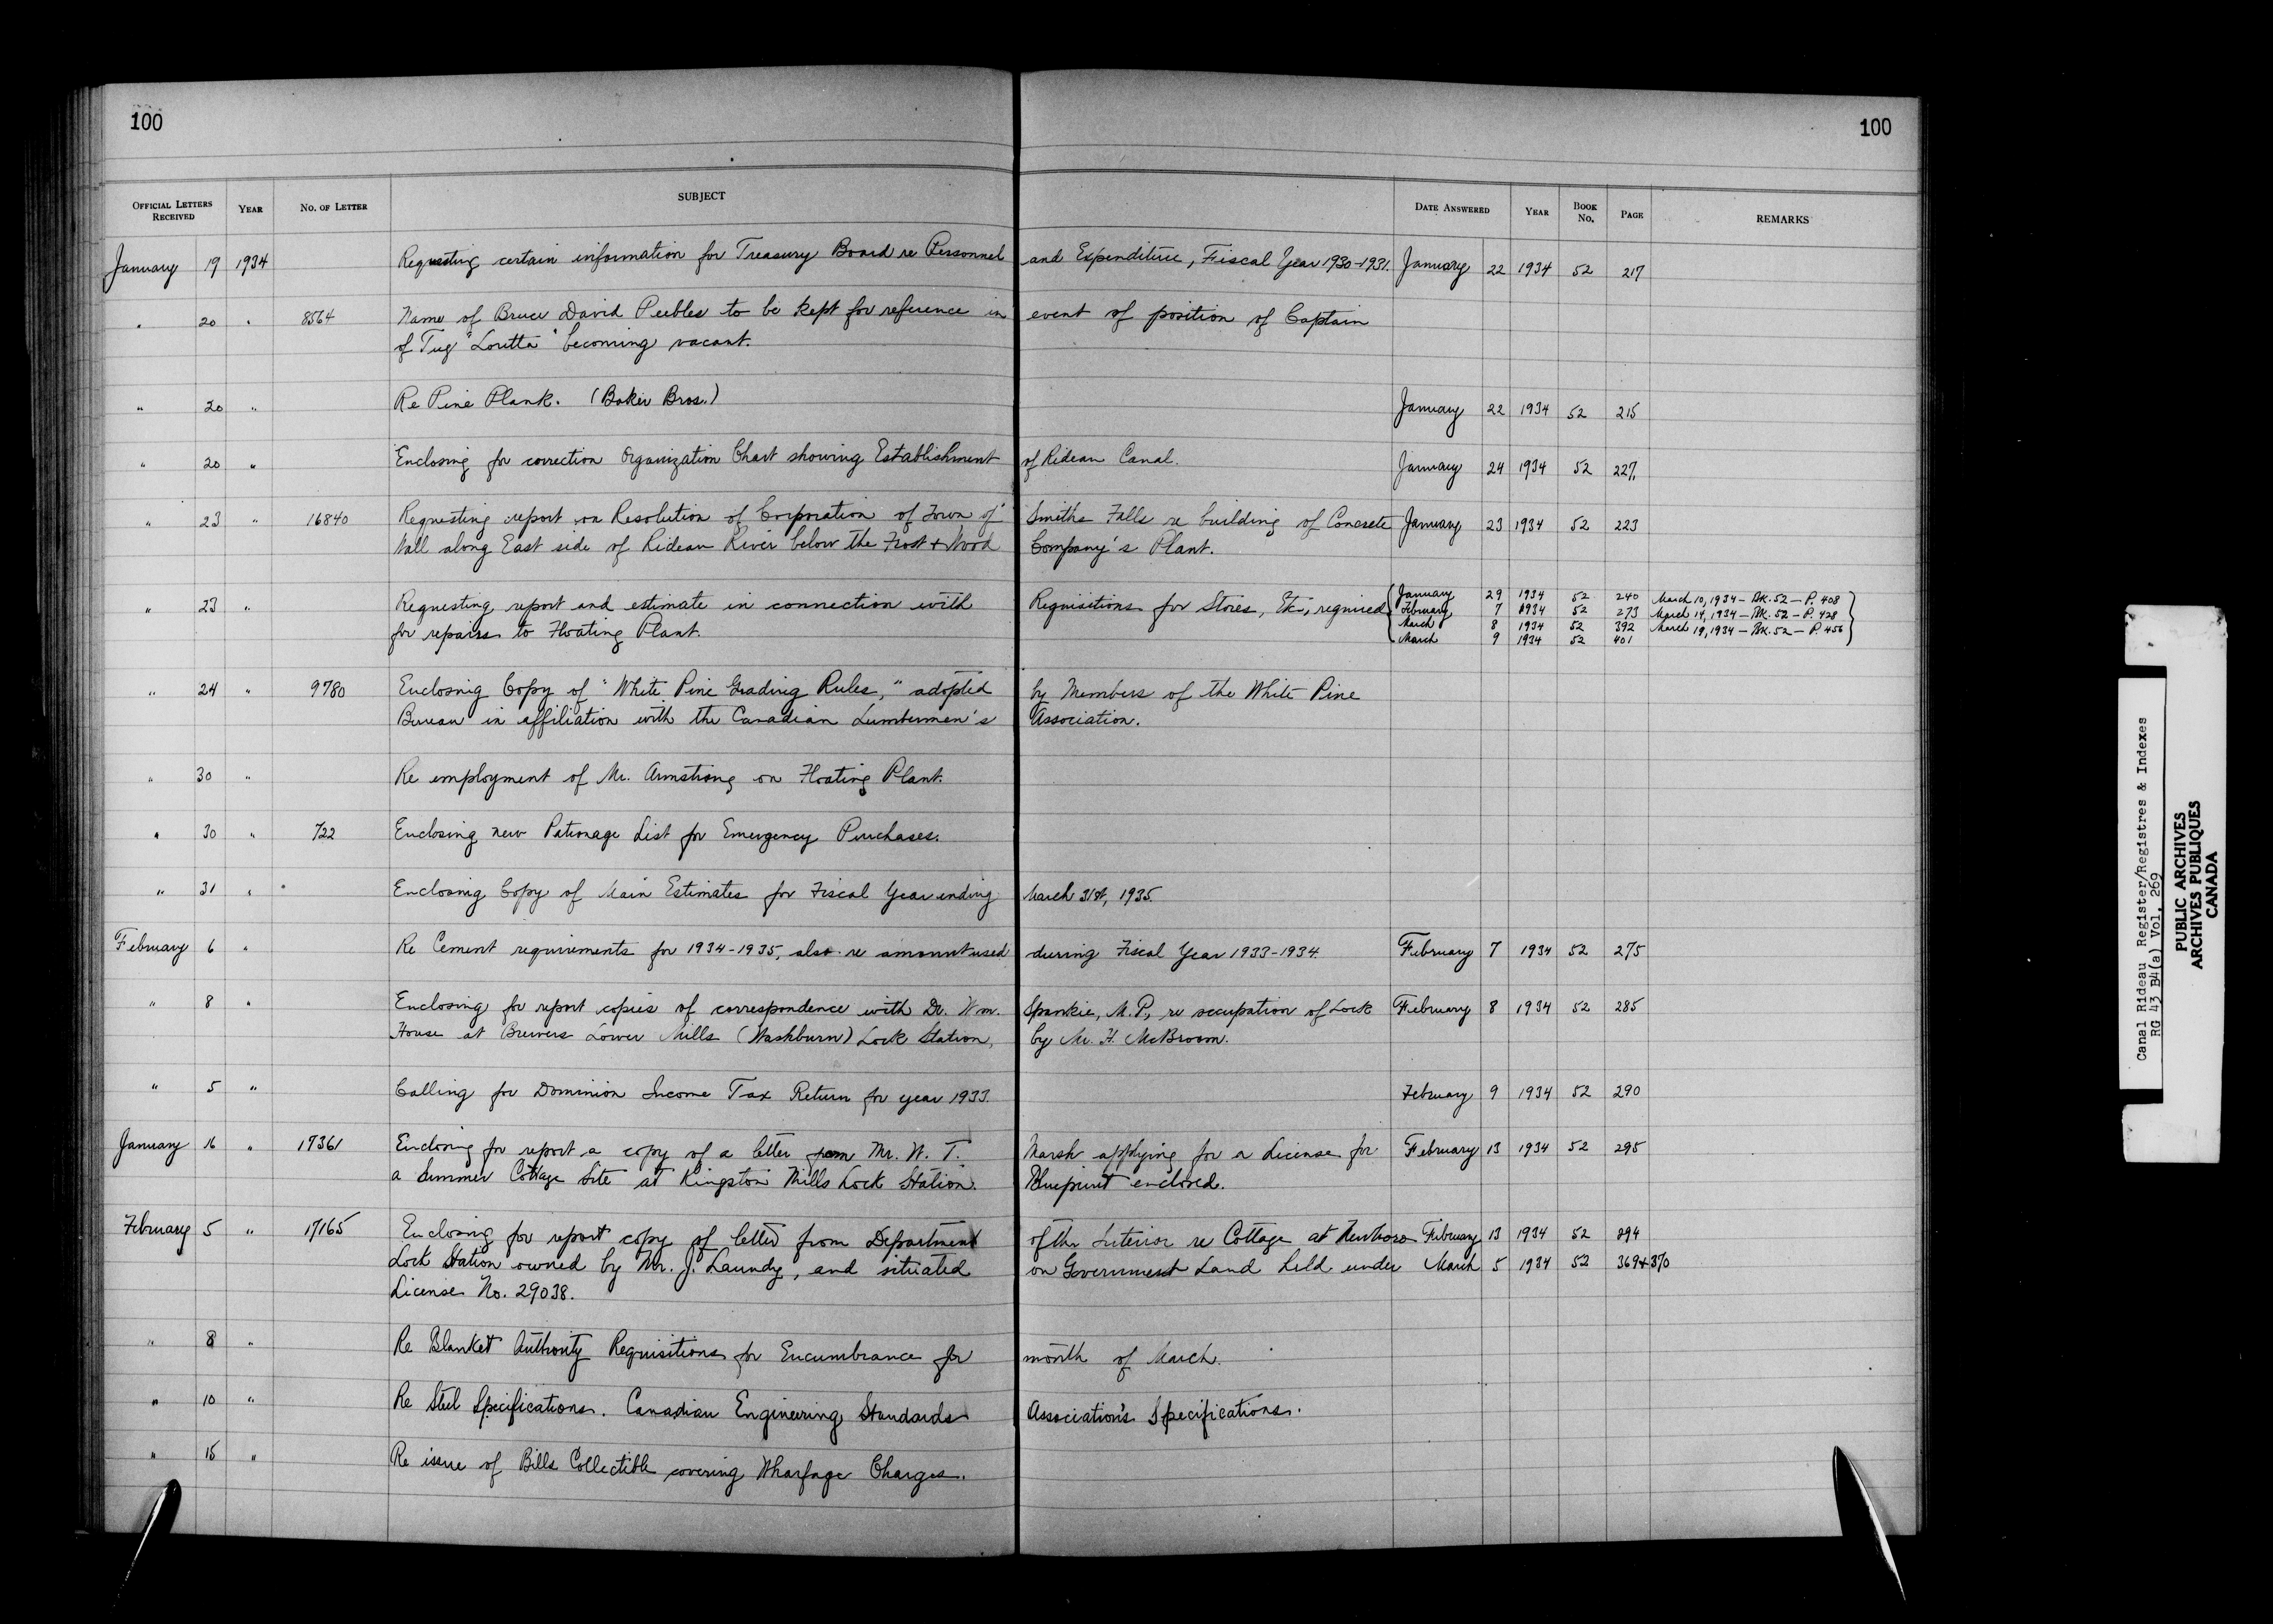 100
100
OFFICIAL LETTERS RECEIVED YEAR NO. OF LETTER SUBJECT DATE ANSWERED YEAR BOOK NO. PAGE REMARKS
January 19 1934 Requesting certain information for Treasury Board re Personnel and Expenditure, Fiscal Year 1930-1931. January 22 1934 52 217
" 20 " 8564 Name of Bruce David Peebles to be kept for reference in event of position of Captain
of Tug "Loretta" becoming vacant.
" 20 " Re Pine Plank. (Baker Bros.) January 22 1934 52 215
" 20 " Enclosing for correction Organization Chart showing Establishment of Rideau Canal. January 24 1934 52 227
" 23 " 16840 Requesting report on Resolution of Corporation of Town of Smiths Falls re building of Concrete January 23 1934 52 223
Wall along East side of Rideau River below the Frost & Wood Company's Plant.
" 23 " Requesting report and estimate in connection with Requisitions for Stores, Etc., required January 29 1934 52 240 March 10, 1934 - Bk. 52 - P. 408
February 7 1934 52 273 March 14, 1934 - Bk. 52 - P. 428
for repairs to Floating Plant. March 8 1934 52 392 March 19, 1934 - Bk. 52 - P. 456
March 9 1934 52 401
" 24 " 9780 Enclosing Copy of "White Pine Grading Rules," adopted by Members of the White Pine
Bureau in affiliation with the Canadian Lumbermen's Association.
" 30 " Re employment of Mr. Armstrong on Floating Plant.
" 30 " 722 Enclosing new Patronage List for Emergency Purchases.
" 31 " Enclosing Copy of Main Estimates for Fiscal Year ending March 31st, 1935.
February 6 " Re Cement requirements for 1934-1935, also re amount used during Fiscal Year 1933-1934. February 7 1934 52 275
" 8 " Enclosing for report copies of correspondence with Dr. Wm. Spankie, M.P., re occupation of Lock February 8 1934 52 285
House at Brewers Lower Mills (Washburn) Lock Station, by Mr. H. McBroom.
" 5 " Calling for Dominion Income Tax Return for year 1933. February 9 1934 52 290
January 16 " 17361 Enclosing for report a copy of a letter from Mr. W. T. Marsh applying for a License for February 13 1934 52 295
a Summer Cottage Site at Kingston Mills Lock Station. Blueprint enclosed.
February 5 " 17165 Enclosing for report copy of letter from Department of the Interior re Cottage at Newboro February 13 1934 52 294
Lock Station owned by Mr. J. Laundy, and situated on Government Land held under March 5 1934 52 369+370
License No. 29038.
" 8 " Re Blanket Authority Requisitions for Encumbrance for month of March.
" 10 " Re Steel Specifications. Canadian Engineering Standards Association's Specifications.
" 15 " Re issue of Bills Collectible covering Wharfage Charges.
Canal Rideau Register/Registres & Indexes
RG 43 B4(a) Vol. 269
PUBLIC ARCHIVES
ARCHIVES PUBLIQUES
CANADA